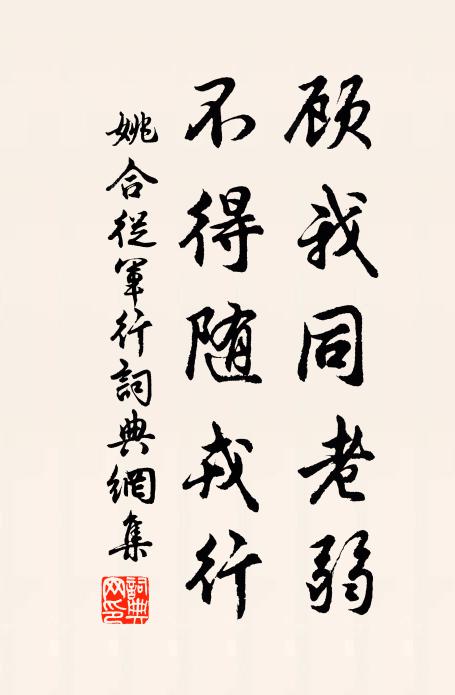 顾我同老弱
不得随戎行
姚合從軍行詞典網集
詞典网印